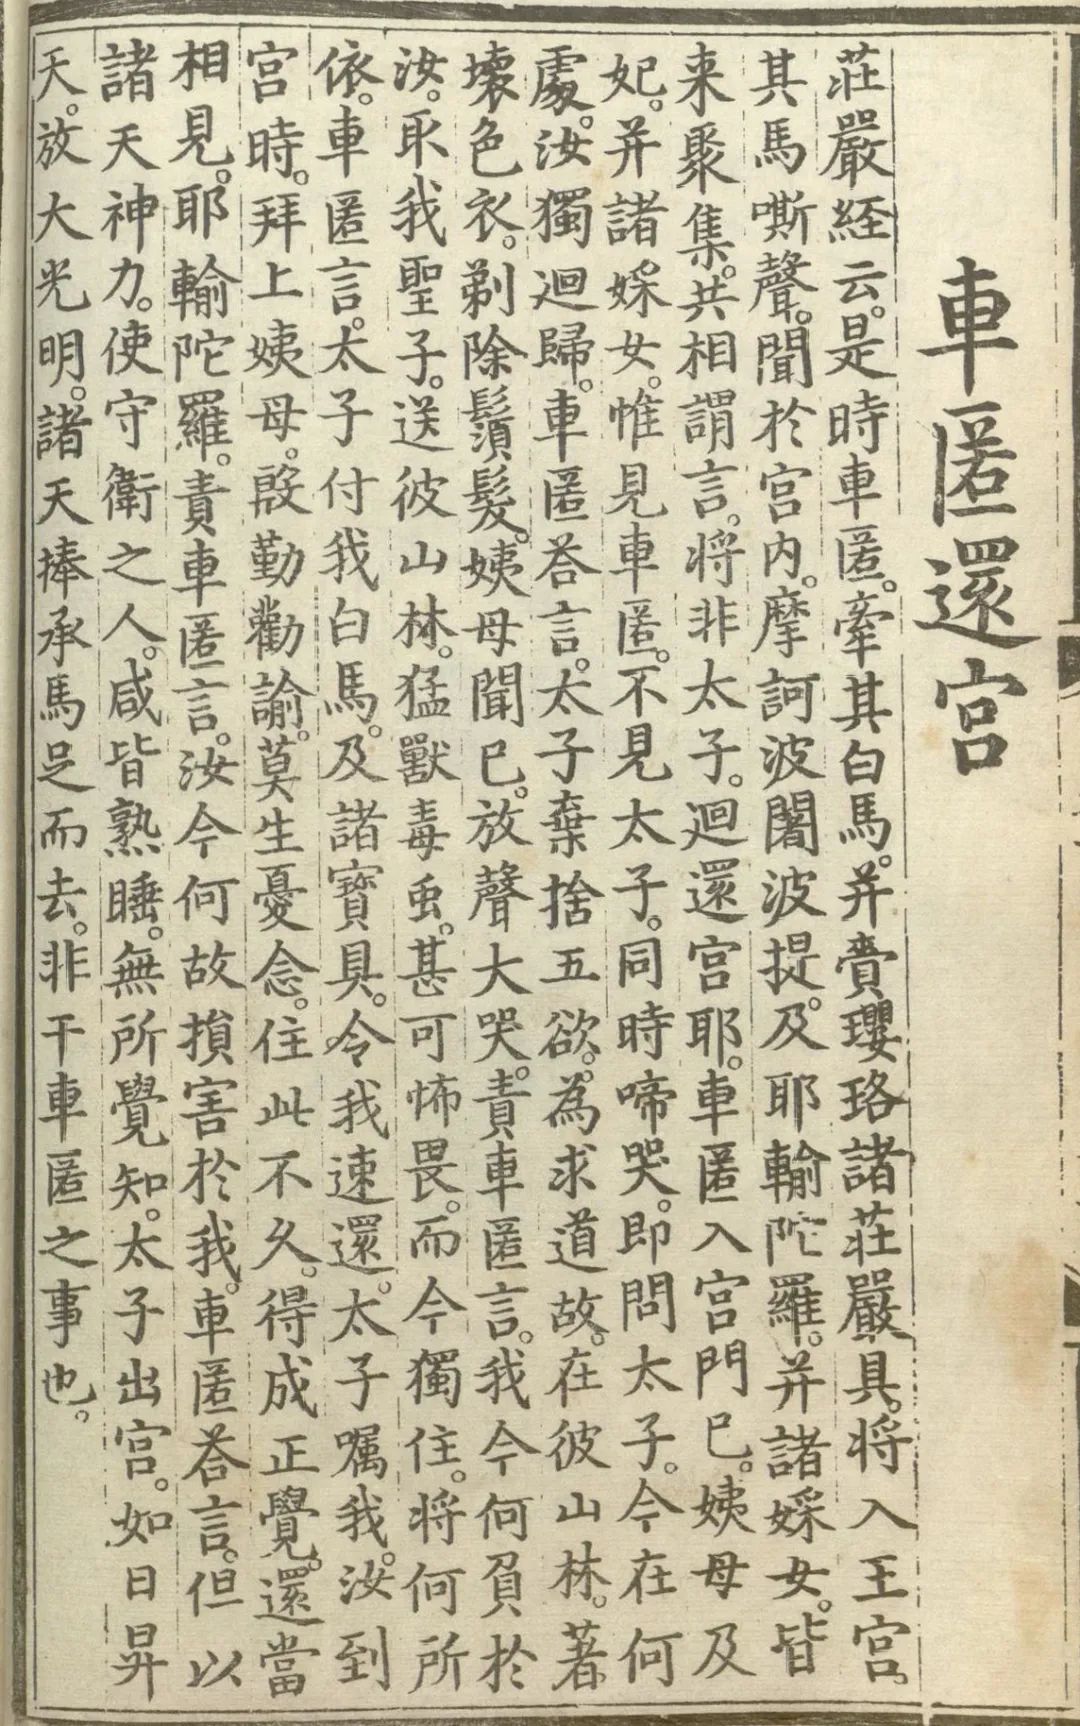 車匿還宮
莊嚴経云。是時車匿。牽其白馬。并賫瓔珞諸莊嚴具。将入王宮。
其馬嘶聲。聞於宮内。摩訶波闍波提。及耶輸陀羅。并諸婇女。皆
来聚集。共相謂言。将非太子。迴還宮耶。車匿入宮門已。姨母及
妃。并諸婇女。惟見車匿。不見太子。同時啼哭。即問太子。今在何
處。汝獨迴歸。車匿荅言。太子棄捨五欲。為求道故。在彼山林。著
壊色衣。剃除鬚髮。姨母聞已。放聲大哭。責車匿言。我今何負於
汝。取我聖子。送彼山林。猛獸毒虫。甚可怖畏。而今獨住。将何所
依。車匿言。太子付我白馬。及諸寶具。令我速還。太子嘱我。汝到
宮時。拜上姨母。慇勤勸諭。莫生憂念。住此不久。得成正覺。還當
相見。耶輸陀羅。責車匿言。汝今何故損害於我。車匿荅言。但以
諸天神力。使守衛之人。咸皆熟睡。無所覺知。太子出宮。如日昇
天。放大光明。諸天捧承馬足而去。非干車匿之事也。